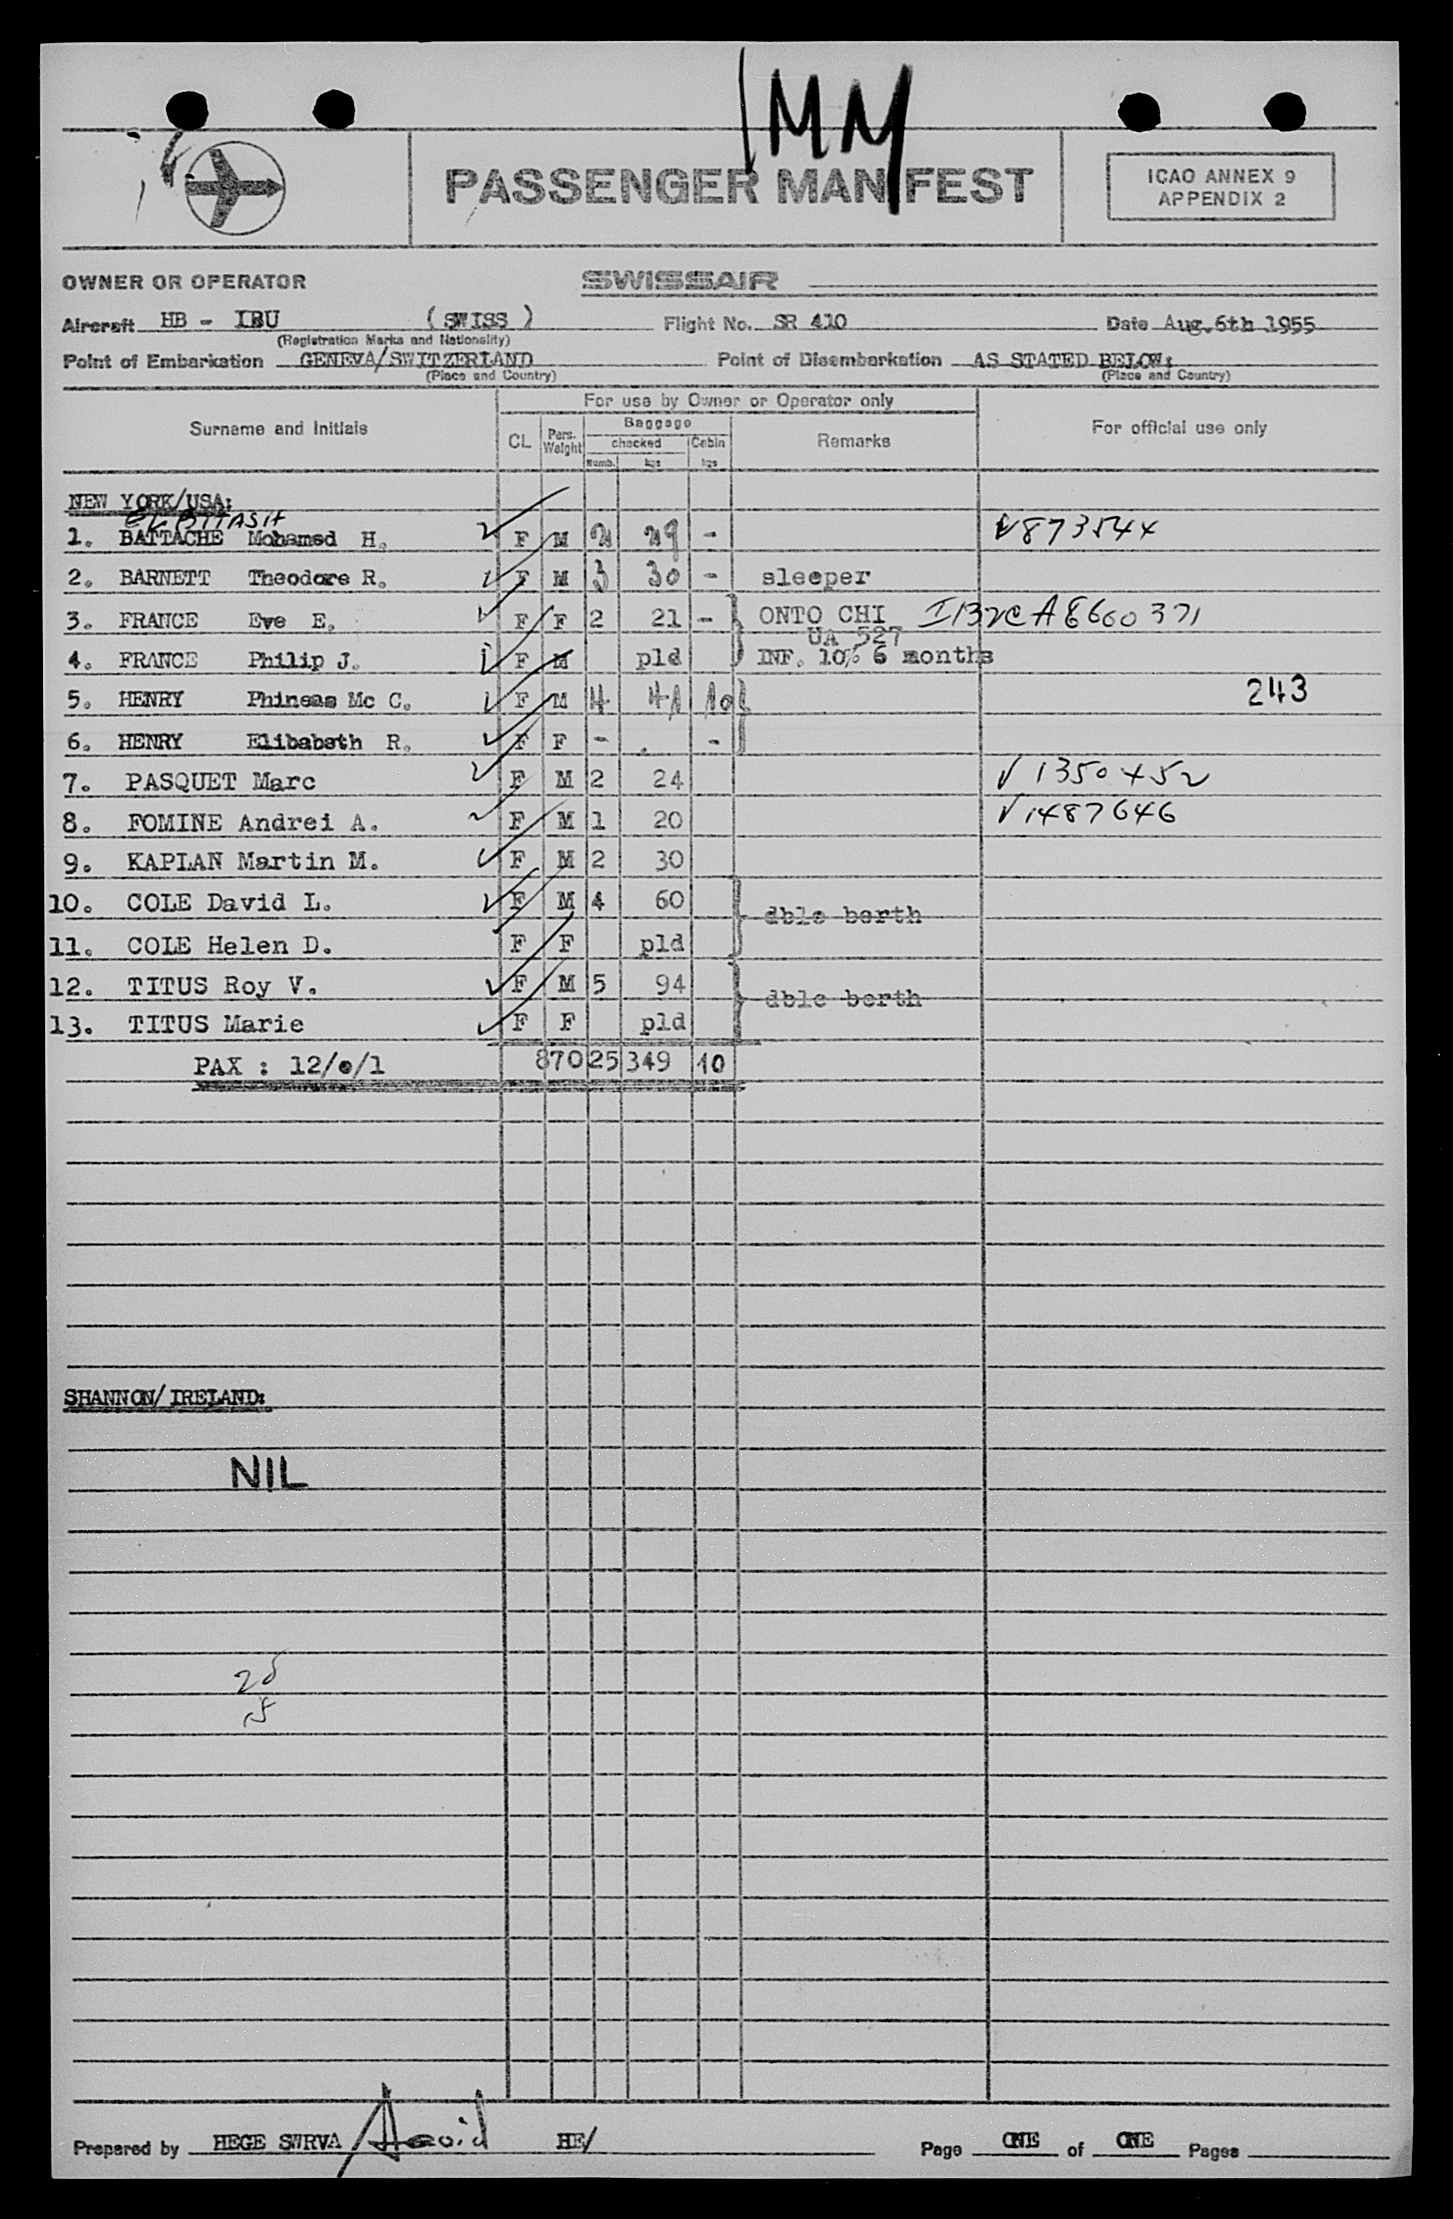 IMM
PASSENGER MANIFEST
ICAO ANNEX 9
APPENDIX 2
OWNER OR OPERATOR SWISSAIR
Aircraft HB - IBU (SWISS) Flight No. SR 410 Date Aug. 6th 1955
(Registration Marks and Nationality)
Point of Embarkation GENEVA/SWITZERLAND Point of Disembarkation AS STATED BELOW:
(Place and Country) (Place and Country)
For use by Owner or Operator only
Surname and Initials CL Pers. Weight Baggage Remarks For official use only
checked Cabin
Numb. kgs kgs
NEW YORK/USA:
1. BATTACHE Mohamed H. F M 2 29 -
2. BARNETT Theodore R. F M 3 30 - sleeper
3. FRANCE Eve E. F F 2 21 - ONTO CHI
UA 527
4. FRANCE Philip J. F M pld INF. 10% 6 months
5. HENRY Phineas Mc C. F M 4 41 10 243
6. HENRY Elibabeth R. F F - . -
7. PASQUET Marc F M 2 24
8. FOMINE Andrei A. F M 1 20 V1487646
9. KAPLAN Martin M. F M 2 30
10. COLE David L. F M 4 60
dble berth
11. COLE Helen D. F F pld
12. TITUS Roy V. F M 5 94
dble berth
13. TITUS Marie F F pld
PAX : 12/0/1 870 25 349 10
SHANNON/IRELAND:
NIL
Prepared by HEGE SWRVA HE/ Page ONE of ONE Pages